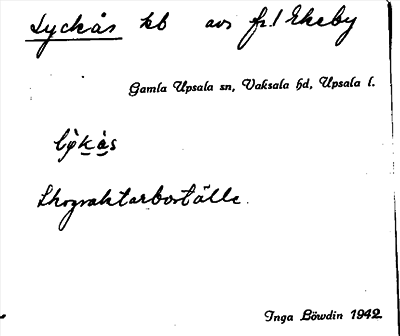 Lyckås kb avs fr. 1 Ekeby
Gamla Upsala sn, Vaksala hd, Upsala l.
Skogvaktarboställe.
Inga Löwdin 1942.